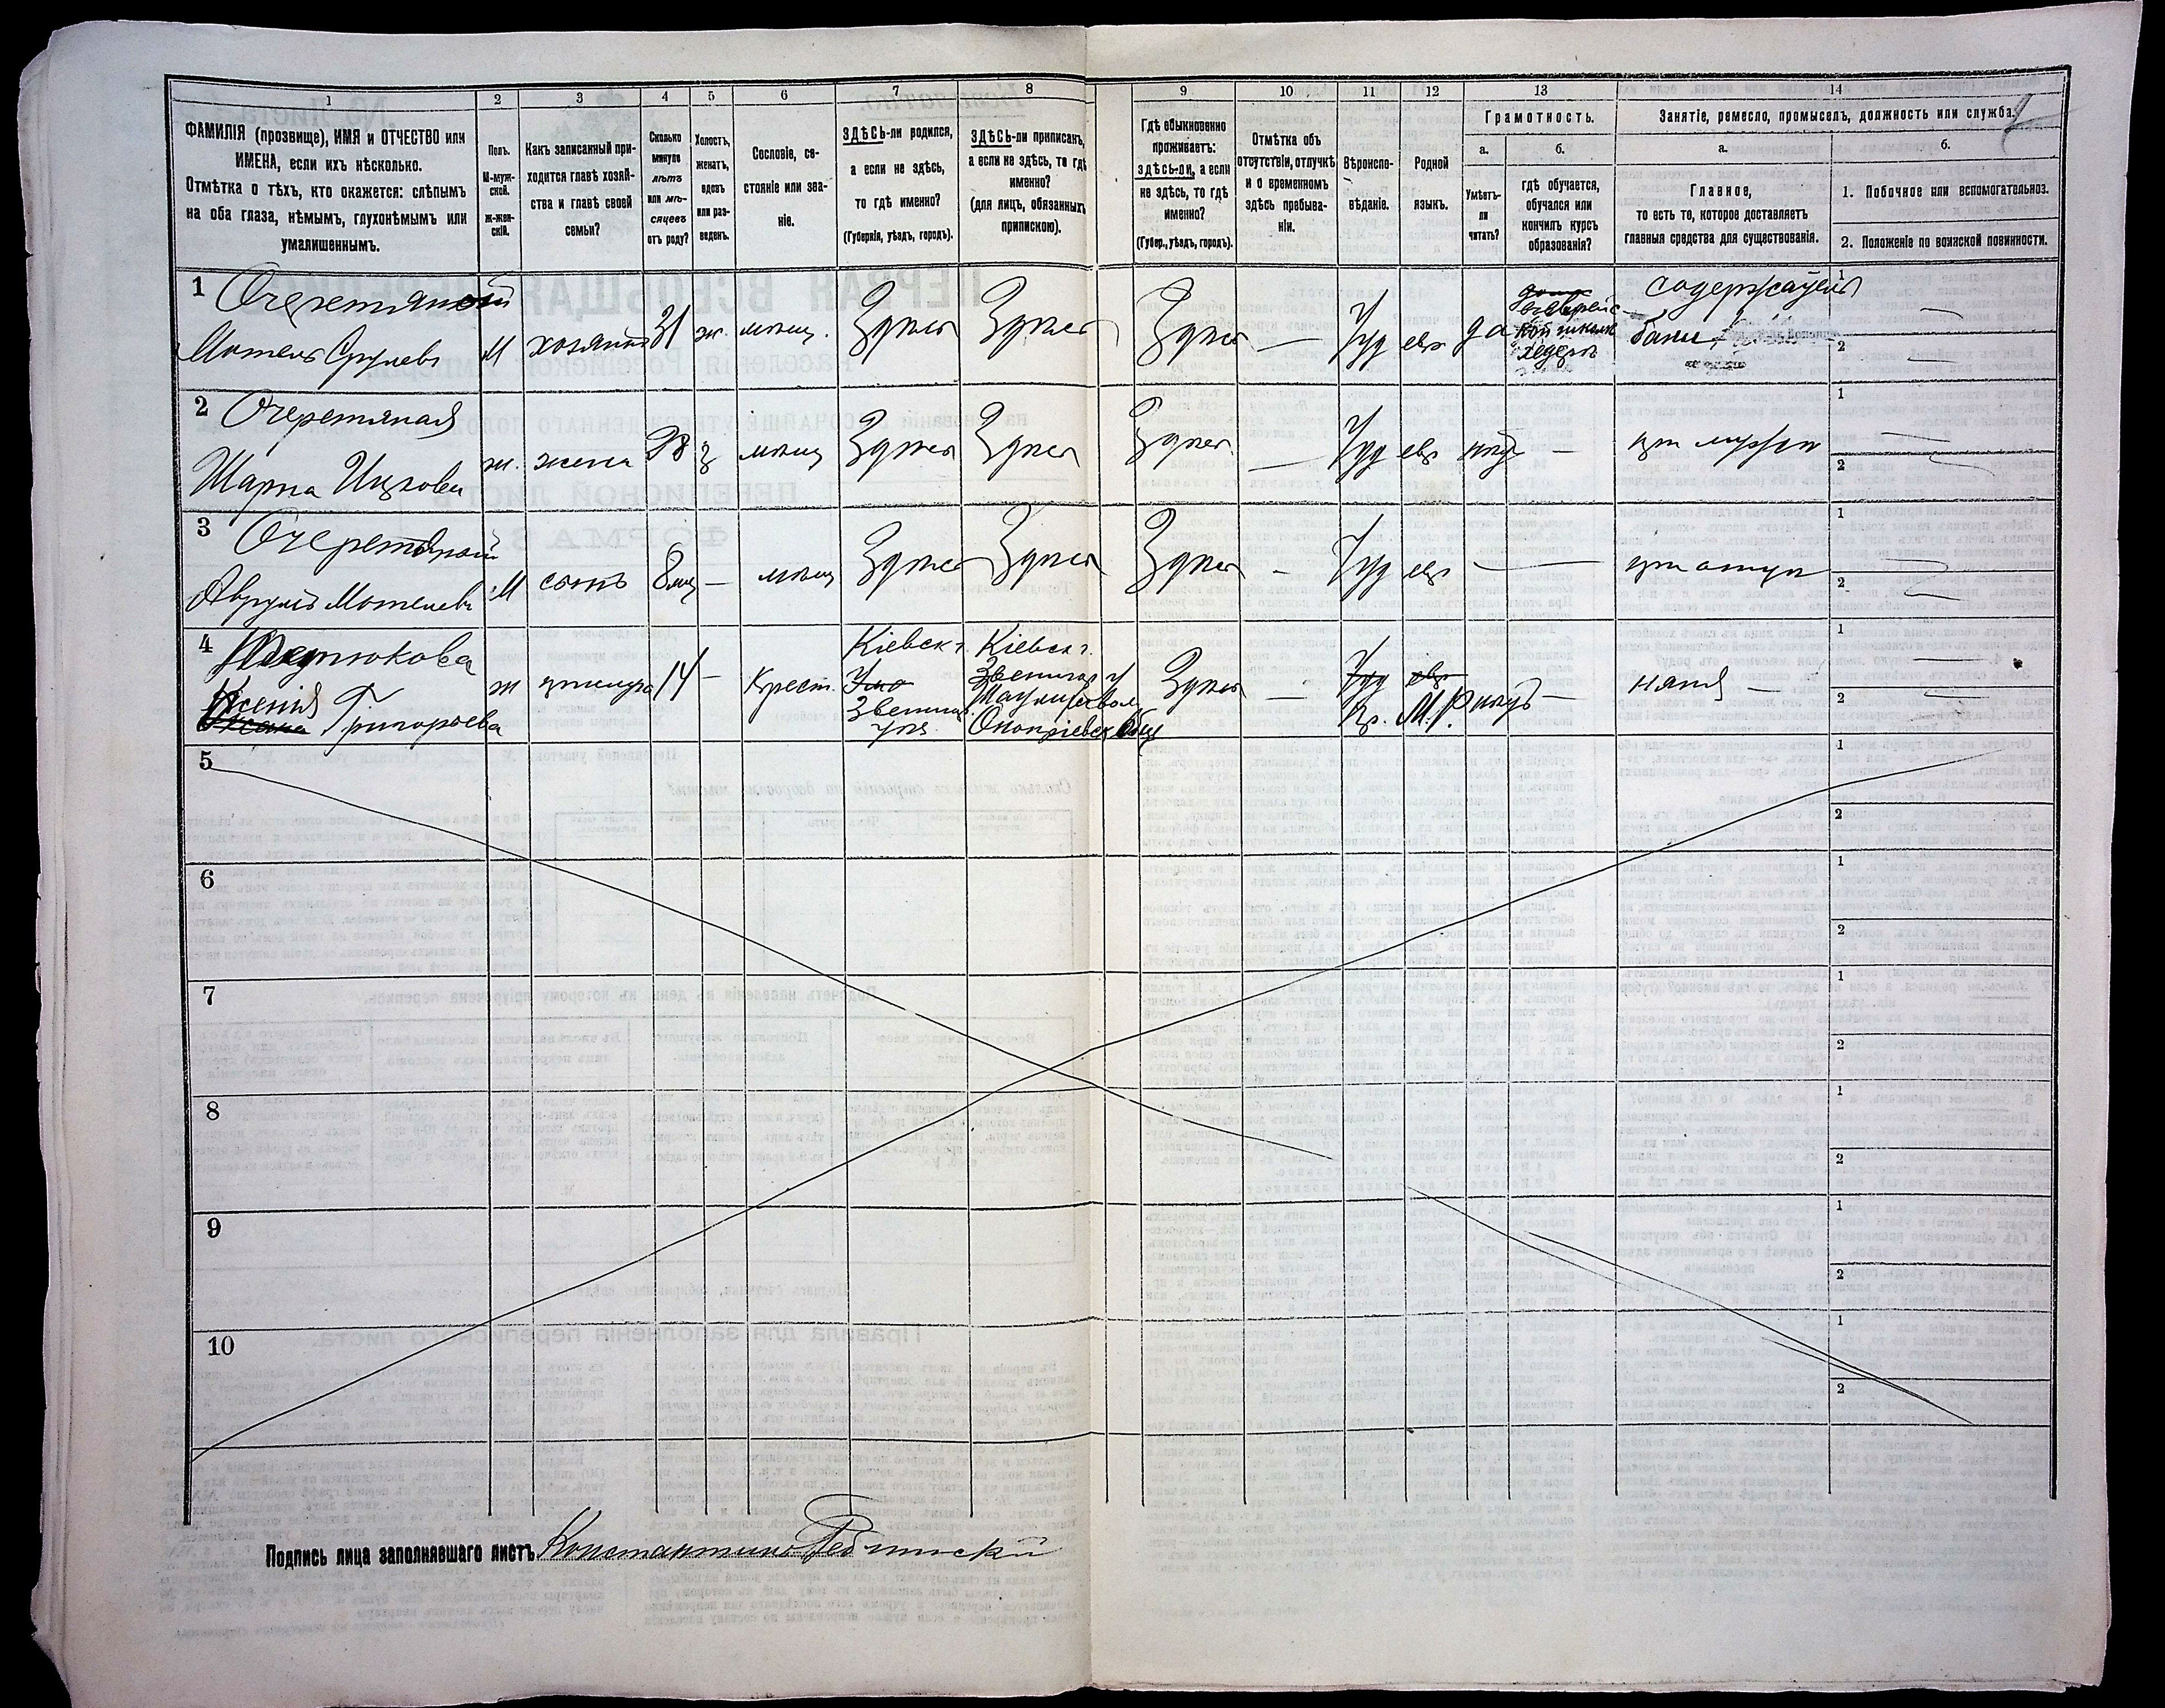 1 2 3 4 5 6 7 8 9 10 11 12 13 14
ФАМИЛІЯ (прозвище), ИМЯ и ОТЧЕСТВО или
ИМЕНА, если ихъ нѣсколько.
Отмѣтка о тѣхъ, кто окажется: слѣпымъ
на оба глаза, нѣмымъ, глухонѣмымъ или
умалишеннымъ.
Полъ.
М-муж-
ской.
ж-жен-
скій.
Какъ записанный при-
ходится главѣ хозяй-
ства и главѣ своей
семьи?
Сколько
минуло
лѣтъ
или мѣ-
сяцевъ
отъ роду?
Холостъ,
женатъ,
вдовъ
или раз-
веденъ.
Сословіе, со-
стояніе или зва-
ніе.
ЗДѢСЬ-ли родился,
а если не здѣсь,
то гдѣ именно?
(Губернія, уѣздъ, городъ).
ЗДѢСЬ-ли приписанъ,
а если не здѣсь, то гдѣ
именно?
(для лицъ, обязанныхъ
припискою).
Гдѣ обыкновенно
проживаетъ:
здѣсь-ли, а если
не здѣсь, то гдѣ
именно?
(Губер., уѣздъ, городъ).
Отмѣтка объ
отсутствіи, отлучкѣ
и о временномъ
здѣсь пребыва-
ніи.
Вѣроиспо-
вѣданіе.
Родной
языкъ.
Грамотность.
а.
Умѣетъ-
ли
читать?
б.
гдѣ обучается,
обучался или
кончилъ курсъ
образованія?
Занятіе, ремесло, промыселъ, должность или служба.
а.
Главное,
то есть то, которое доставляетъ
главныя средства для существованія.
б.
1. Побочное или вспомогательное.
2. Положеніе по воинской повинности.
1 Очеретяной
Мотель Срулевъ
М хозяинъ 31 ж. мѣщ. Здѣсь Здѣсь Здѣсь — Іуд евр да
еврейс-
кой школѣ
хедеръ
содержатель
бани
1 —
2 —
2 Очеретяная
Шарна Ицкова
ж. жена 28 з мѣщ Здѣсь Здѣсь Здѣсь — Іуд евр нѣтъ — при мужѣ
1 —
2 —
3 Очеретяной
Аврумъ Мотелевъ
М сынъ 8 мц — мѣщ Здѣсь Здѣсь Здѣсь — Іуд евр — при отцѣ
1 —
2 —
4
Ксенія Григорьева
ж прислуга 14 — Крест.
Кіевск г.
Звениг.
уѣз.
Кіевск г.
Звенигор у
Здѣсь — Іуд евр
Пр. М.Р. нѣтъ — няня —
1 —
2 —
5 1
2
6 1
2
7 1
2
8 1
2
9 1
2
10 1
2
Подпись лица заполнявшаго листъ Константинъ